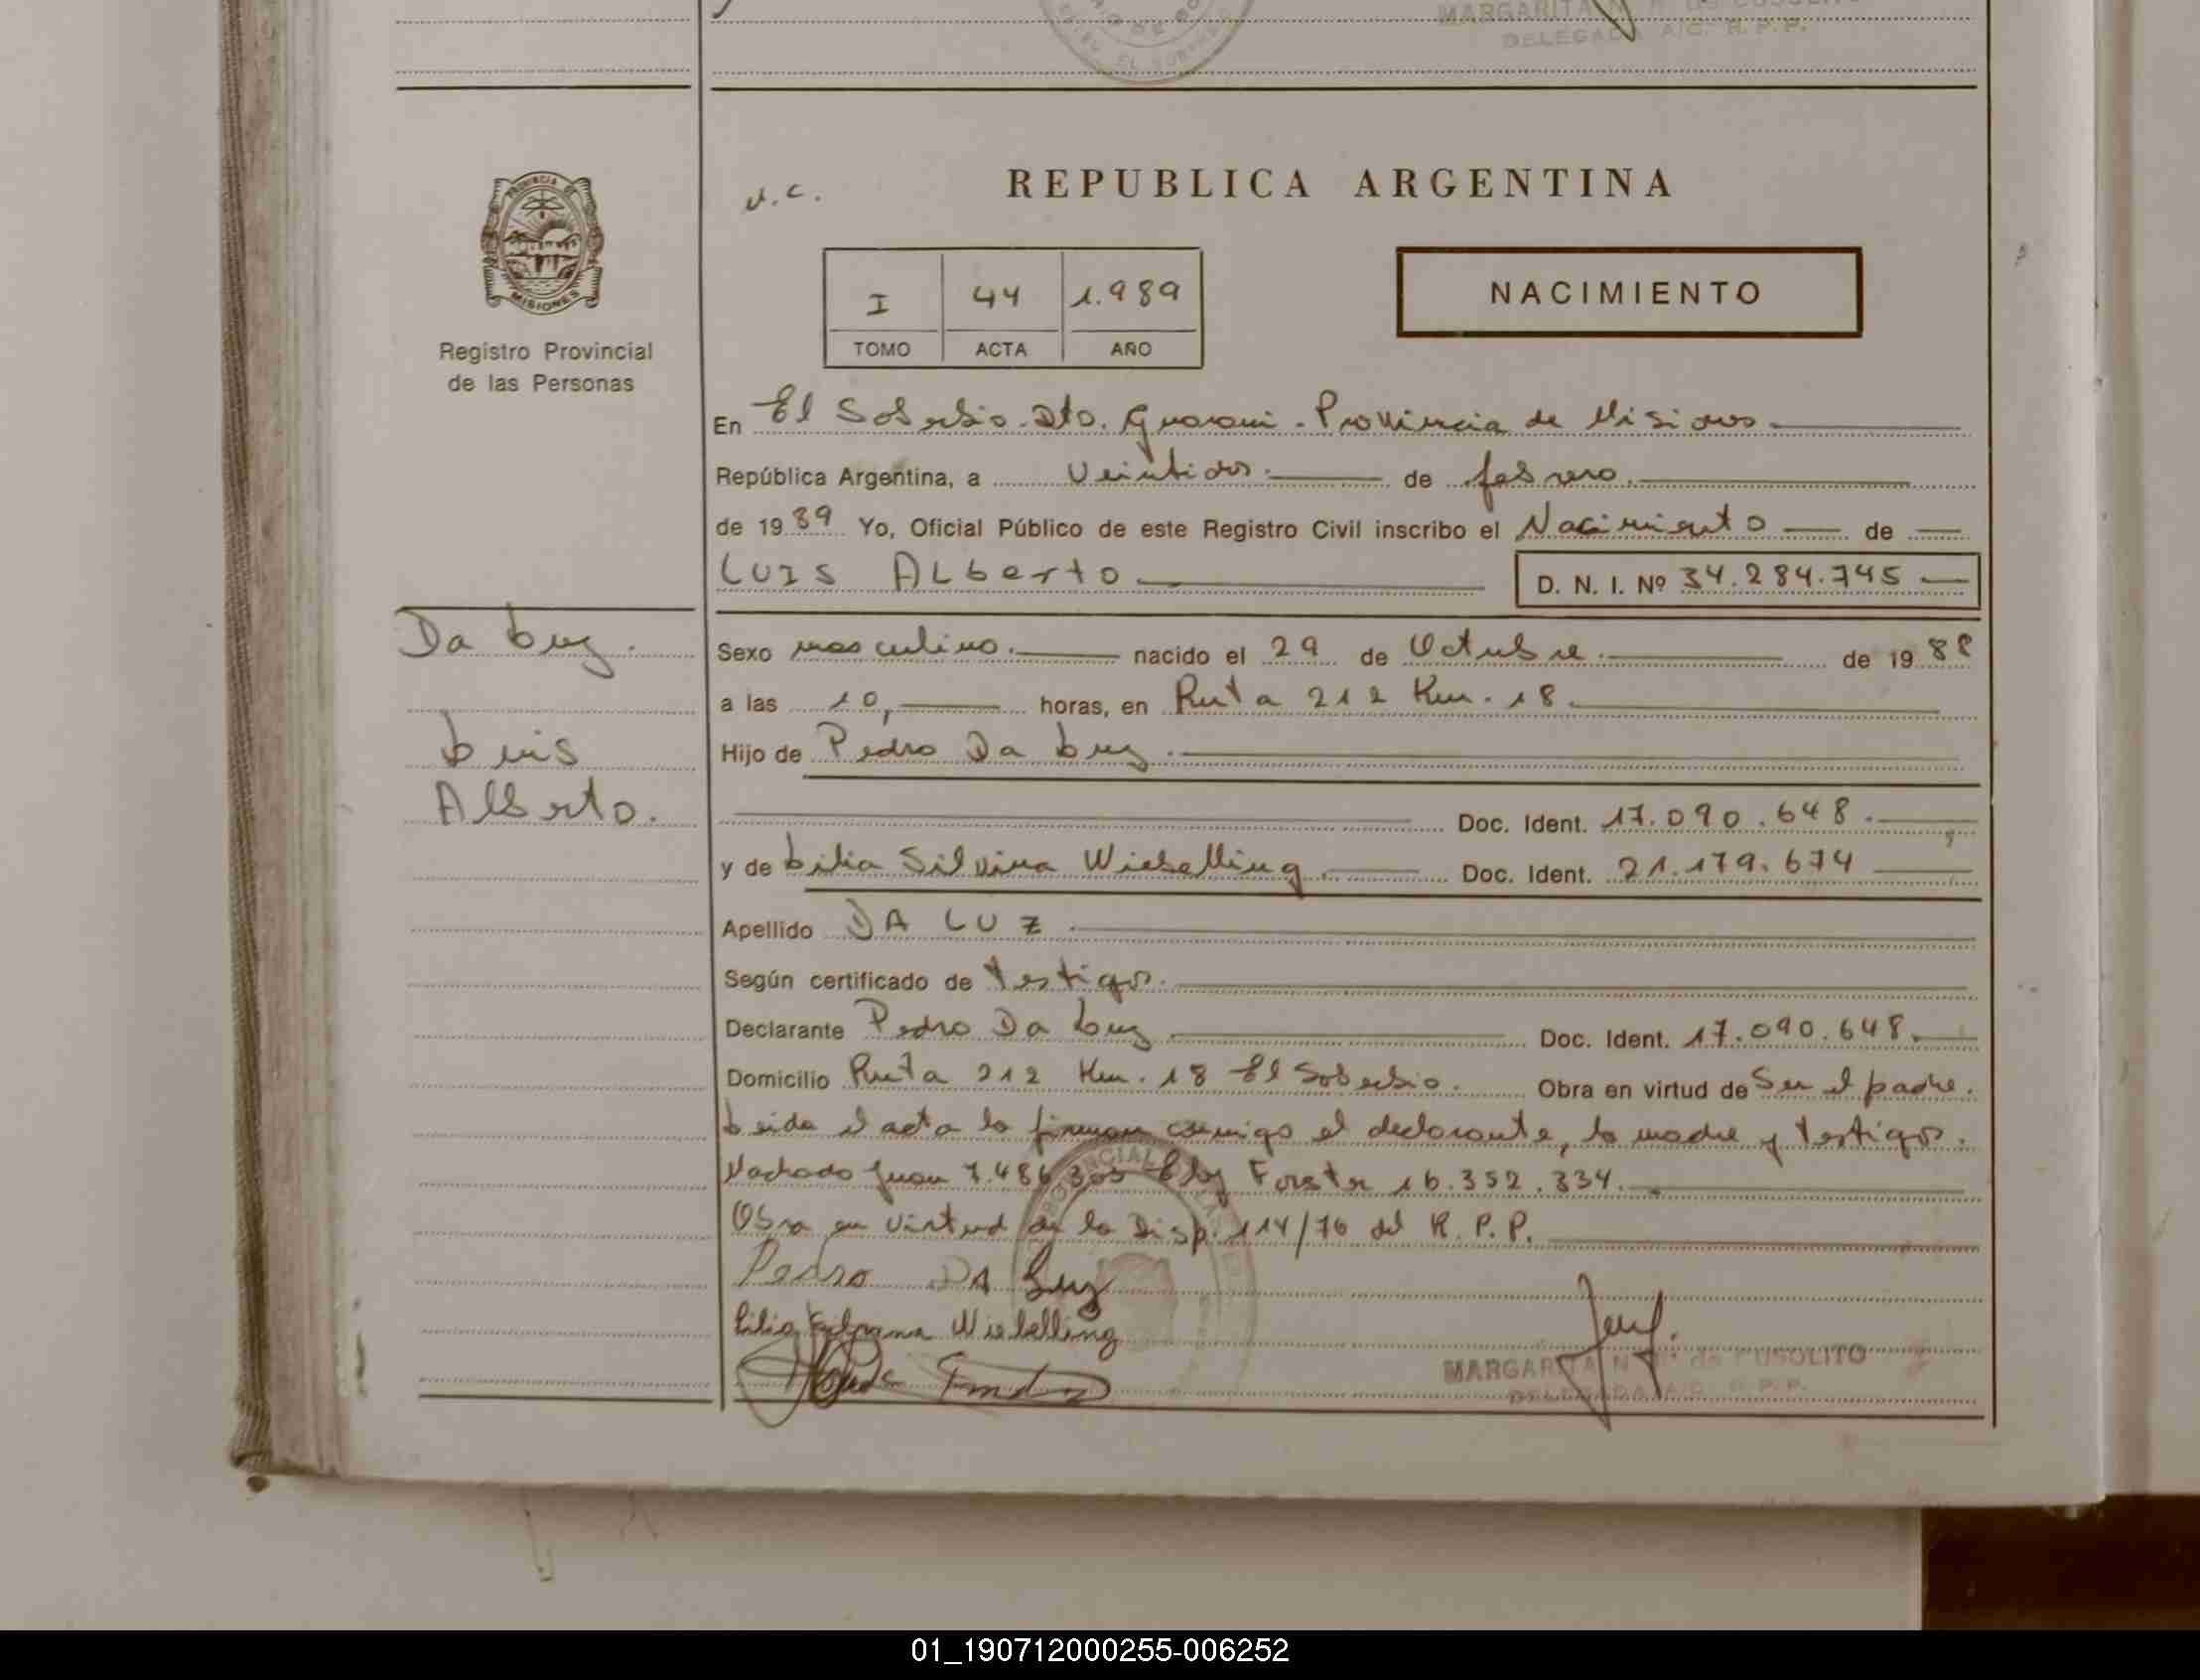 MARGARITA N. M. de CUSOLITO
DELEGADA A/C. R. P. P.
PROVINCIA DE
MISIONES
Registro Provincial
de las Personas
v.c.
REPUBLICA ARGENTINA
I 44 1.989
TOMO ACTA AÑO
NACIMIENTO
En El Soberbio. Dto. Guarani - Provincia de Misiones
República Argentina, a Veintidos. de febrero.
de 1989 Yo, Oficial Público de este Registro Civil inscribo el Nacimiento de
LUIS ALberto D. N. I. Nº 34.284.745
Da Luz.
Luis
Alberto.
Sexo masculino. nacido el 29 de Octubre. de 1988
a las 10, horas, en Ruta 212 Km. 18.
Hijo de Pedro Da Luz.
Doc. Ident. 17.090.648.
y de Lilia Silvina Wiebelling. Doc. Ident. 21.179.674
Apellido DA LUZ
Según certificado de testigos.
Declarante Pedro Da Luz Doc. Ident. 17.090.648.
Domicilio Ruta 212 Km. 18 El Soberbio. Obra en virtud de Ser el padre.
Leida el acta la firman conmigo el declarante, la madre y testigos.
Machado Juan 7.486.303 Eloy Forster 16.352.334.
Obra en virtud de la Disp. 114/76 del R. P. P.
Pedro DA Luz
Lilia Wiebelling
MARGARITA N. M. de CUSOLITO
DELEGADA A/C. R. P. P.
01_190712000255-006252